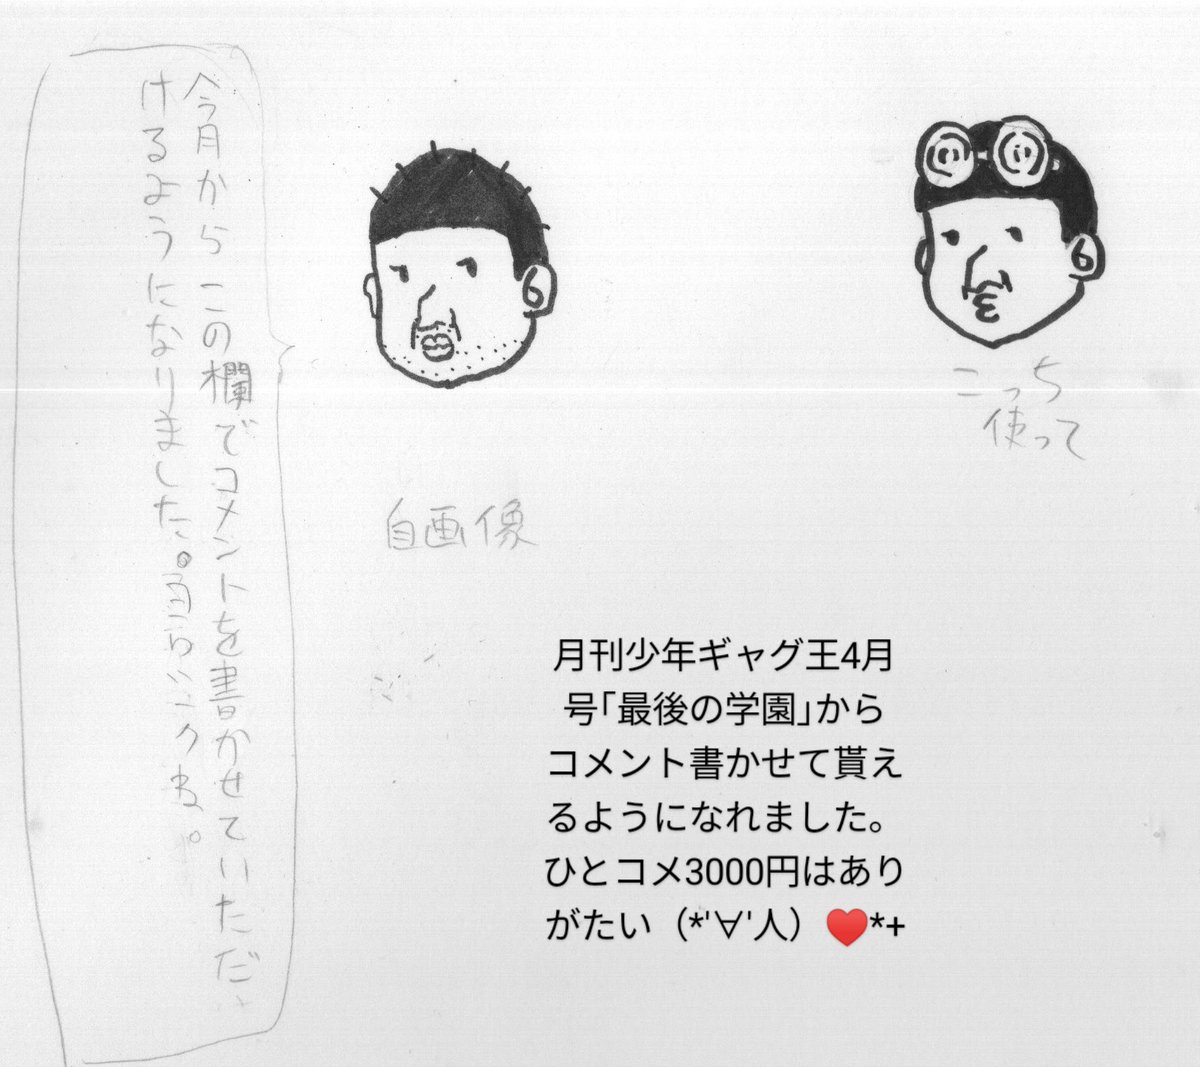 今月からこの欄でコメントを書かせていただ
けるようになりました。
ね。
自画像
こっち
使って
月刊少年ギャグ王4月
号「最後の学園」から
コメント書かせて貰え
るようになれました。
ひとコメ3000円はあり
がたい（*'∀'人）♥*+